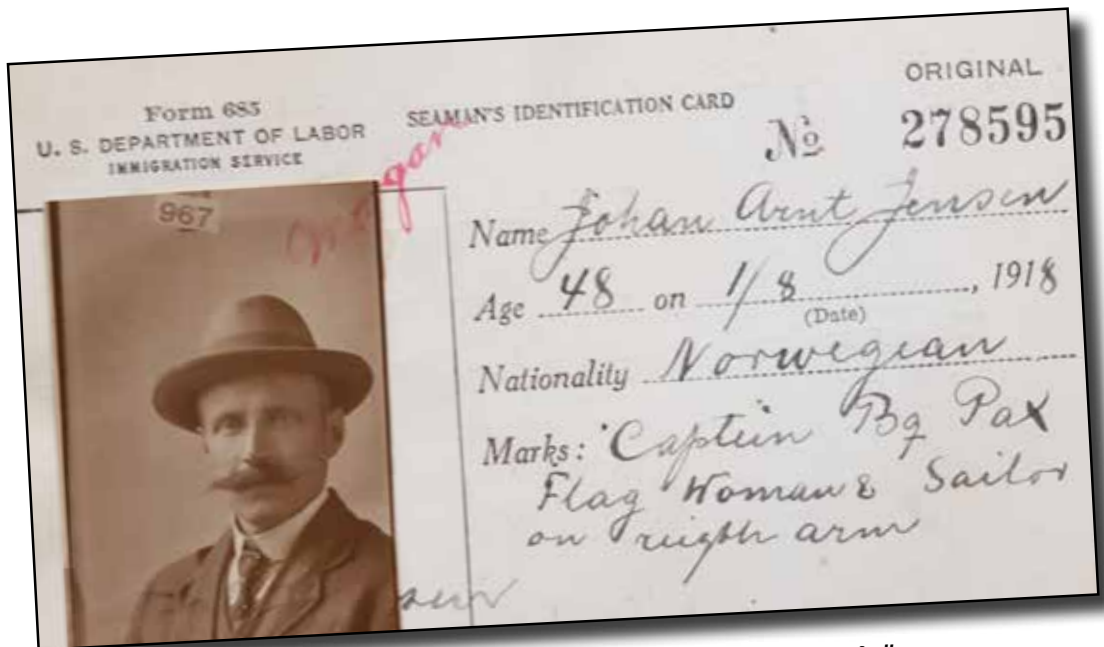 ORIGINAL
Form 685
U. S. DEPARTMENT OF LABOR
IMMIGRATION SERVICE
SEAMAN'S IDENTIFICATION CARD
No 278595
967
Name Johan Arnt Jensen
Age 48 on 1/8, 1918
(Date)
Nationality Norwegian
Marks: Captein Bq Pax
Flag Woman & Sailor
on rigth arm